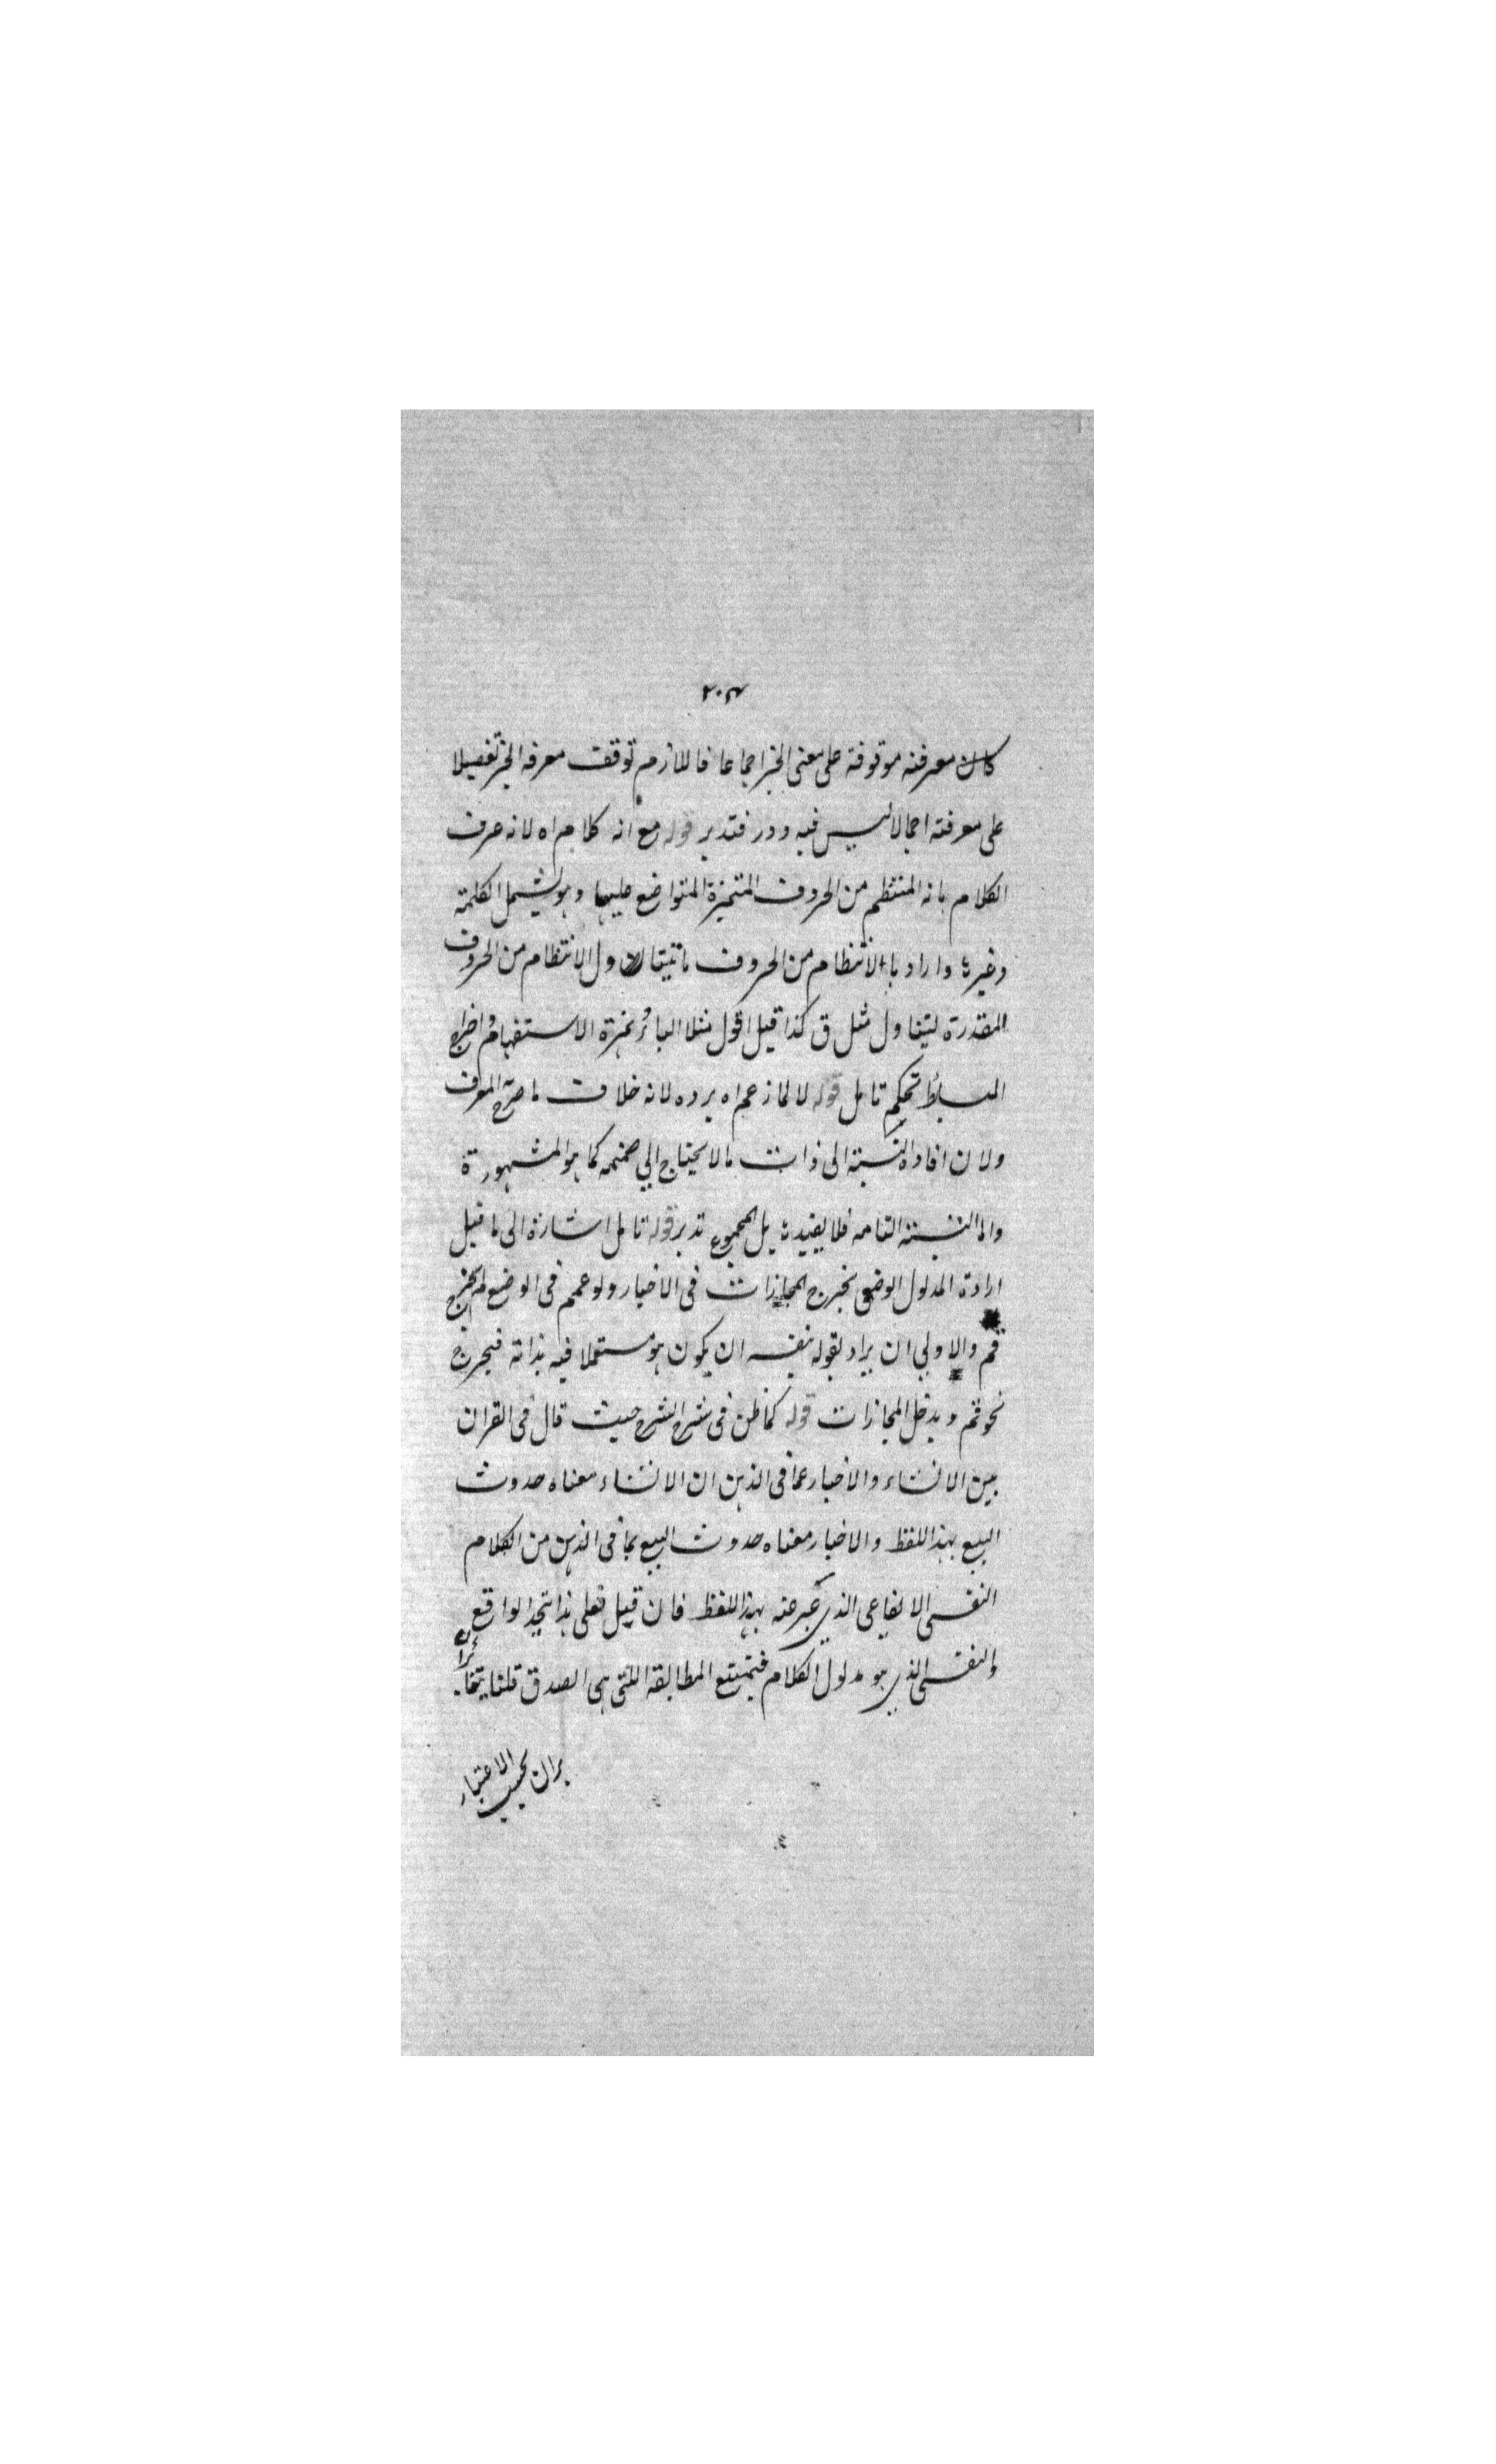 ٢٠٣
كان معرفته موقوفة على معنى الخبر اجماعا فاللازم توقف معرفه الخبر تفصيلا
على معرفته اجمالا ليس فيه دور فتدبر قوله مع انه كلام اه لانه عرف
الكلام بانه المنتظم من الحروف المتميزة المتواضع عليها وهو يشمل الكلمة
وغيرها واراد بالانتظام من الحروف ما يتناول الانتظام من الحروف
المقدرة ليتناول مثل ق كذا قيل اقول مثلا الباء وهمزة الاستفهام واخراج
البسائط تحكم تامل قوله لا لما زعم اه يرده لانه خلاف ما صرح المعرف
ولان افادة النسبة الى ذات ما لا يحتاج الي ضميمه كما هو المشهورة
واما النسبة التامه فلا يفيدها بل المجموع تدبر قوله تامل اشارة الى ما قيل
ارادة المدلول الوضعى يخرج المجازات فى الاخبار ولو عمم فى الوضع لم يخرج
قم والاولي ان يراد بقوله بنفسه ان يكون هو مستعملا فيه بذاته فيخرج
نحو قم ويدخل المجازات قوله كما ظن فى شرح الشرح حيث قال فى القران
بين الانشاء والاخبار عما فى الذهن ان الانشاء معناه حدوث
البيع بهذا اللفظ والاخبار معناه حدوث البيع بما فى الذهن من الكلام
النفسى الايقاعى الذي عبر عنه بهذا اللفظ فان قيل فعلى هذا يتحد الواقع
والنفسى الذي هو مدلول الكلام فيمتنع المطابقة اللتى هى الصدق قلنا يتغايران
يران بحسب الاعتبار